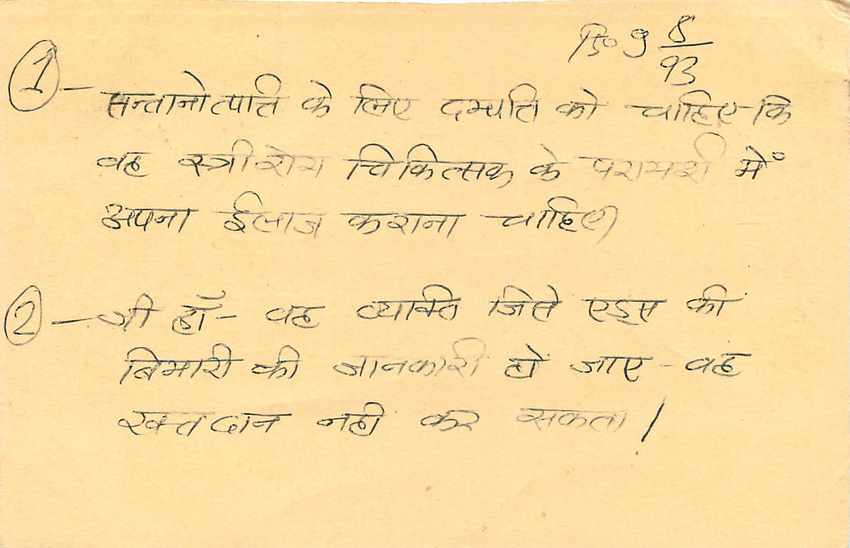 दि० 9 8/93
① - सन्तानोत्पत्ति के लिए दम्पत्ति को चाहिए कि
वह स्त्री रोग चिकित्सक के परामर्श में
अपना ईलाज कराना चाहिए।
② - जी हाँ - वह व्यक्ति जिसे एड्स की
बिमारी की जानकारी हो जाए - वह
रक्तदान नही कर सकता।